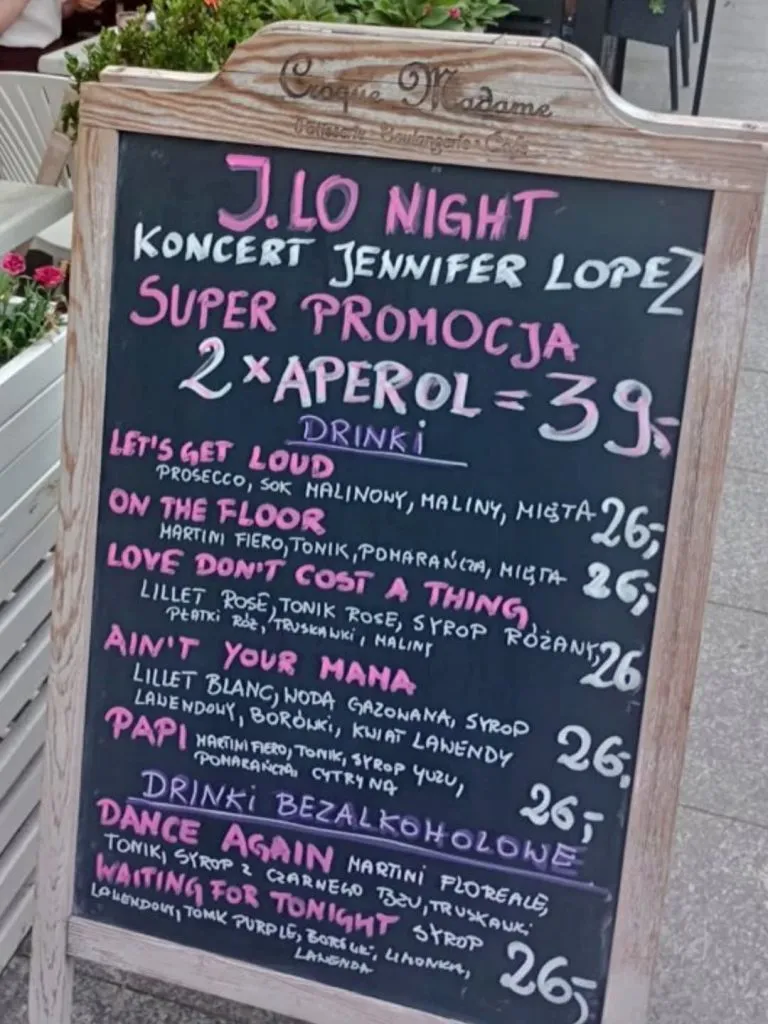 Croque Madame
Patisserie · Boulangerie · Café
J.LO NIGHT
KONCERT JENNIFER LOPEZ
SUPER PROMOCJA
2 x APEROL = 39,-
DRINKI
LET'S GET LOUD
PROSECCO, SOK MALINOWY, MALINY, MIĘTA 26,-
ON THE FLOOR
MARTINI FIERO, TONIK, POMARAŃCZA, MIĘTA 26,-
LOVE DON'T COST A THING
LILLET ROSE, TONIK ROSE, SYROP RÓŻANY,
PŁATKI RÓŻ, TRUSKAWKI, MALINY 26
AIN'T YOUR MAMA
LILLET BLANC, WODA GAZOWANA, SYROP
LAWENDOWY, BORÓWKI, KWIAT LAWENDY 26,-
PAPI MARTINI FIERO, TONIK, SYROP YUZU,
POMARAŃCZA, CYTRYNA 26,-
DRINKI BEZALKOHOLOWE
DANCE AGAIN MARTINI FLOREALE,
TONIK, SYROP Z CZARNEGO BZU, TRUSKAWKI
WAITING FOR TONIGHT SYROP
LAWENDOWY, TONIK PURPLE, BORÓWKI, LIMONKA,
LAWENDA 26,-